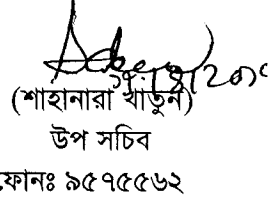 (শাহানারা খাতুন)
উপ সচিব
ফোনঃ ৯৫৭৫৫৬২